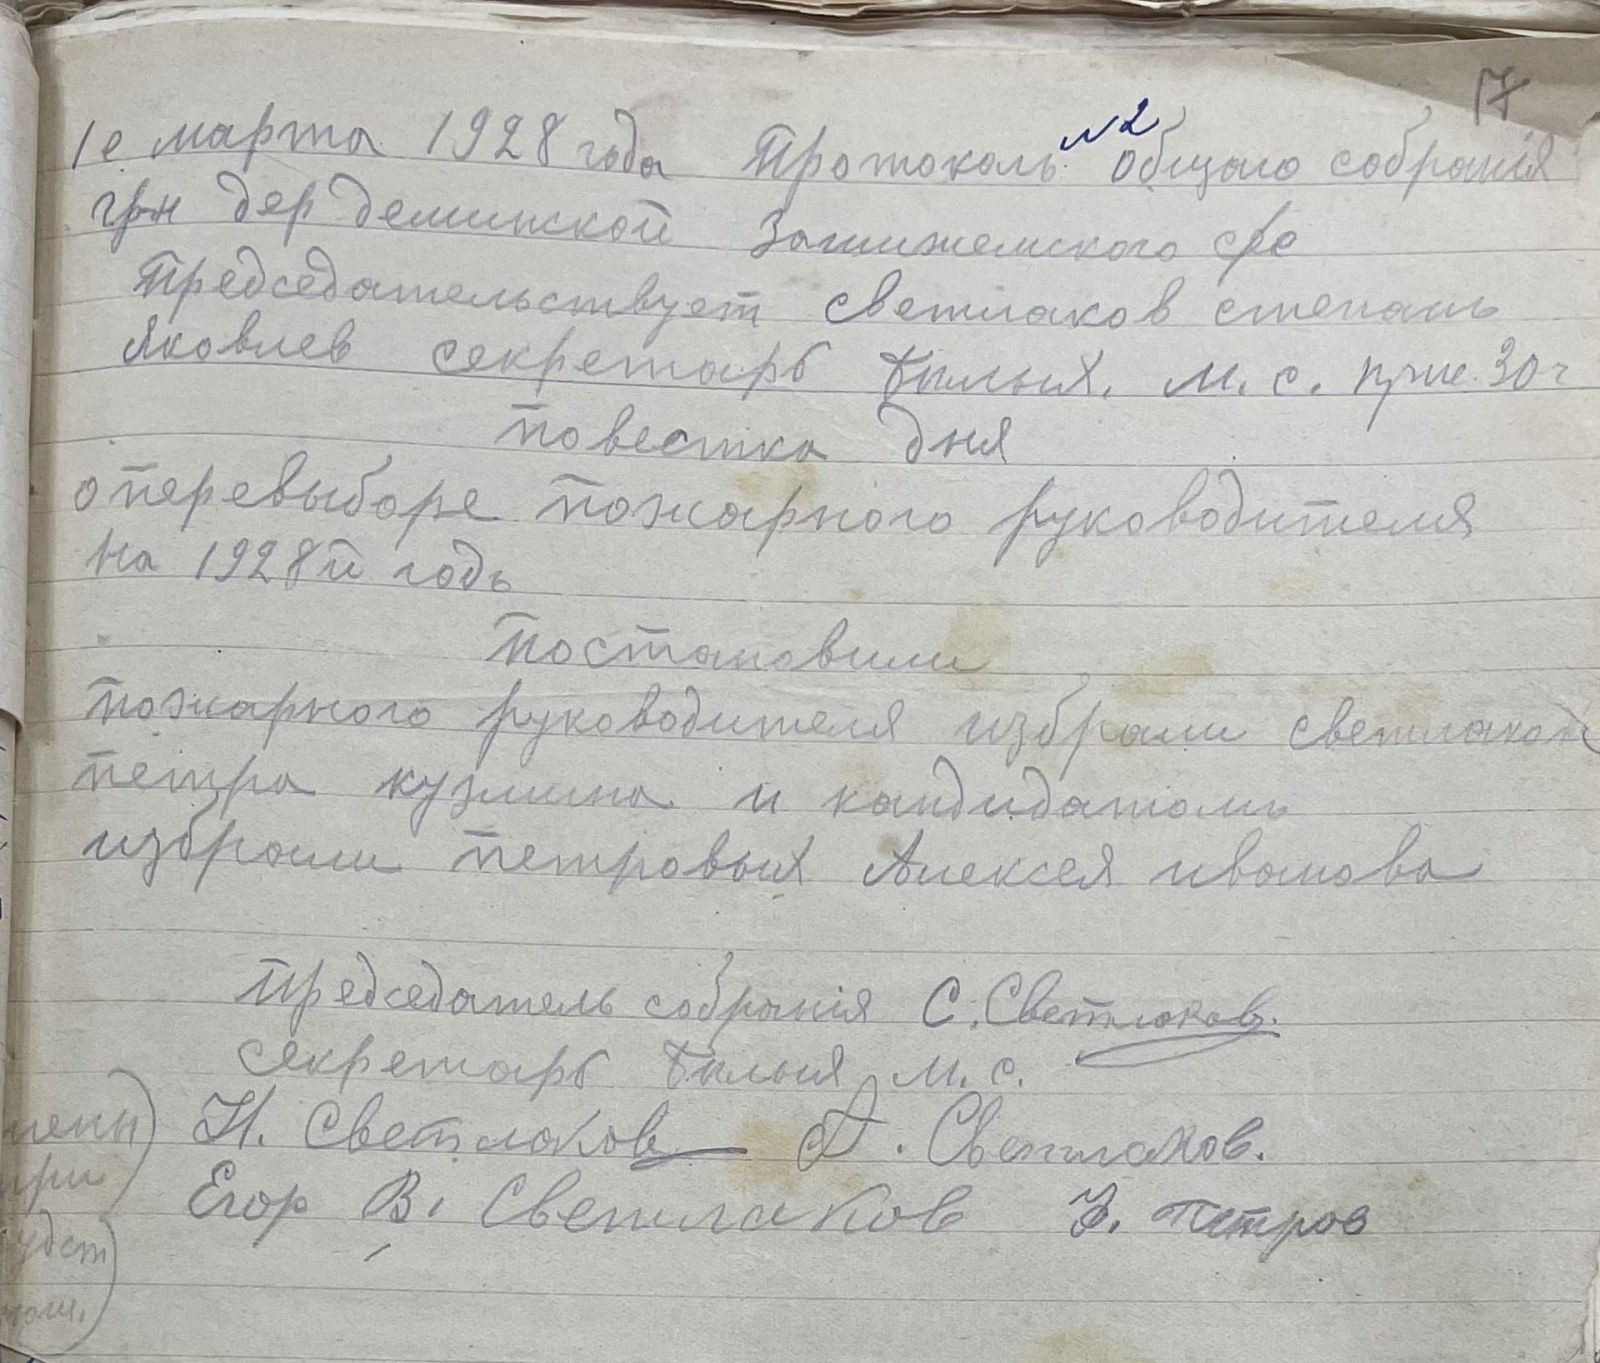 17
1е марта 1928 года Протоколъ №2 общаго собранія
грн дер деминской Зашижемского с/с
Председательствует светлаков степанъ
Яковлев секретарь Билых. М. С. при 30 ч
Повестка дня
о перевыборе пожарного руководителя
на 1928й годъ
Постановили
пожарного руководителя избрали светлаков
петра кузмина и кандидатомъ
избрали петровых Алексея иванова
Председатель собранія С. Светлаков.
Секретарь Билых М. С.
Н. Светлаков Д. Светлаков.
Егор В. Светлаков Петров